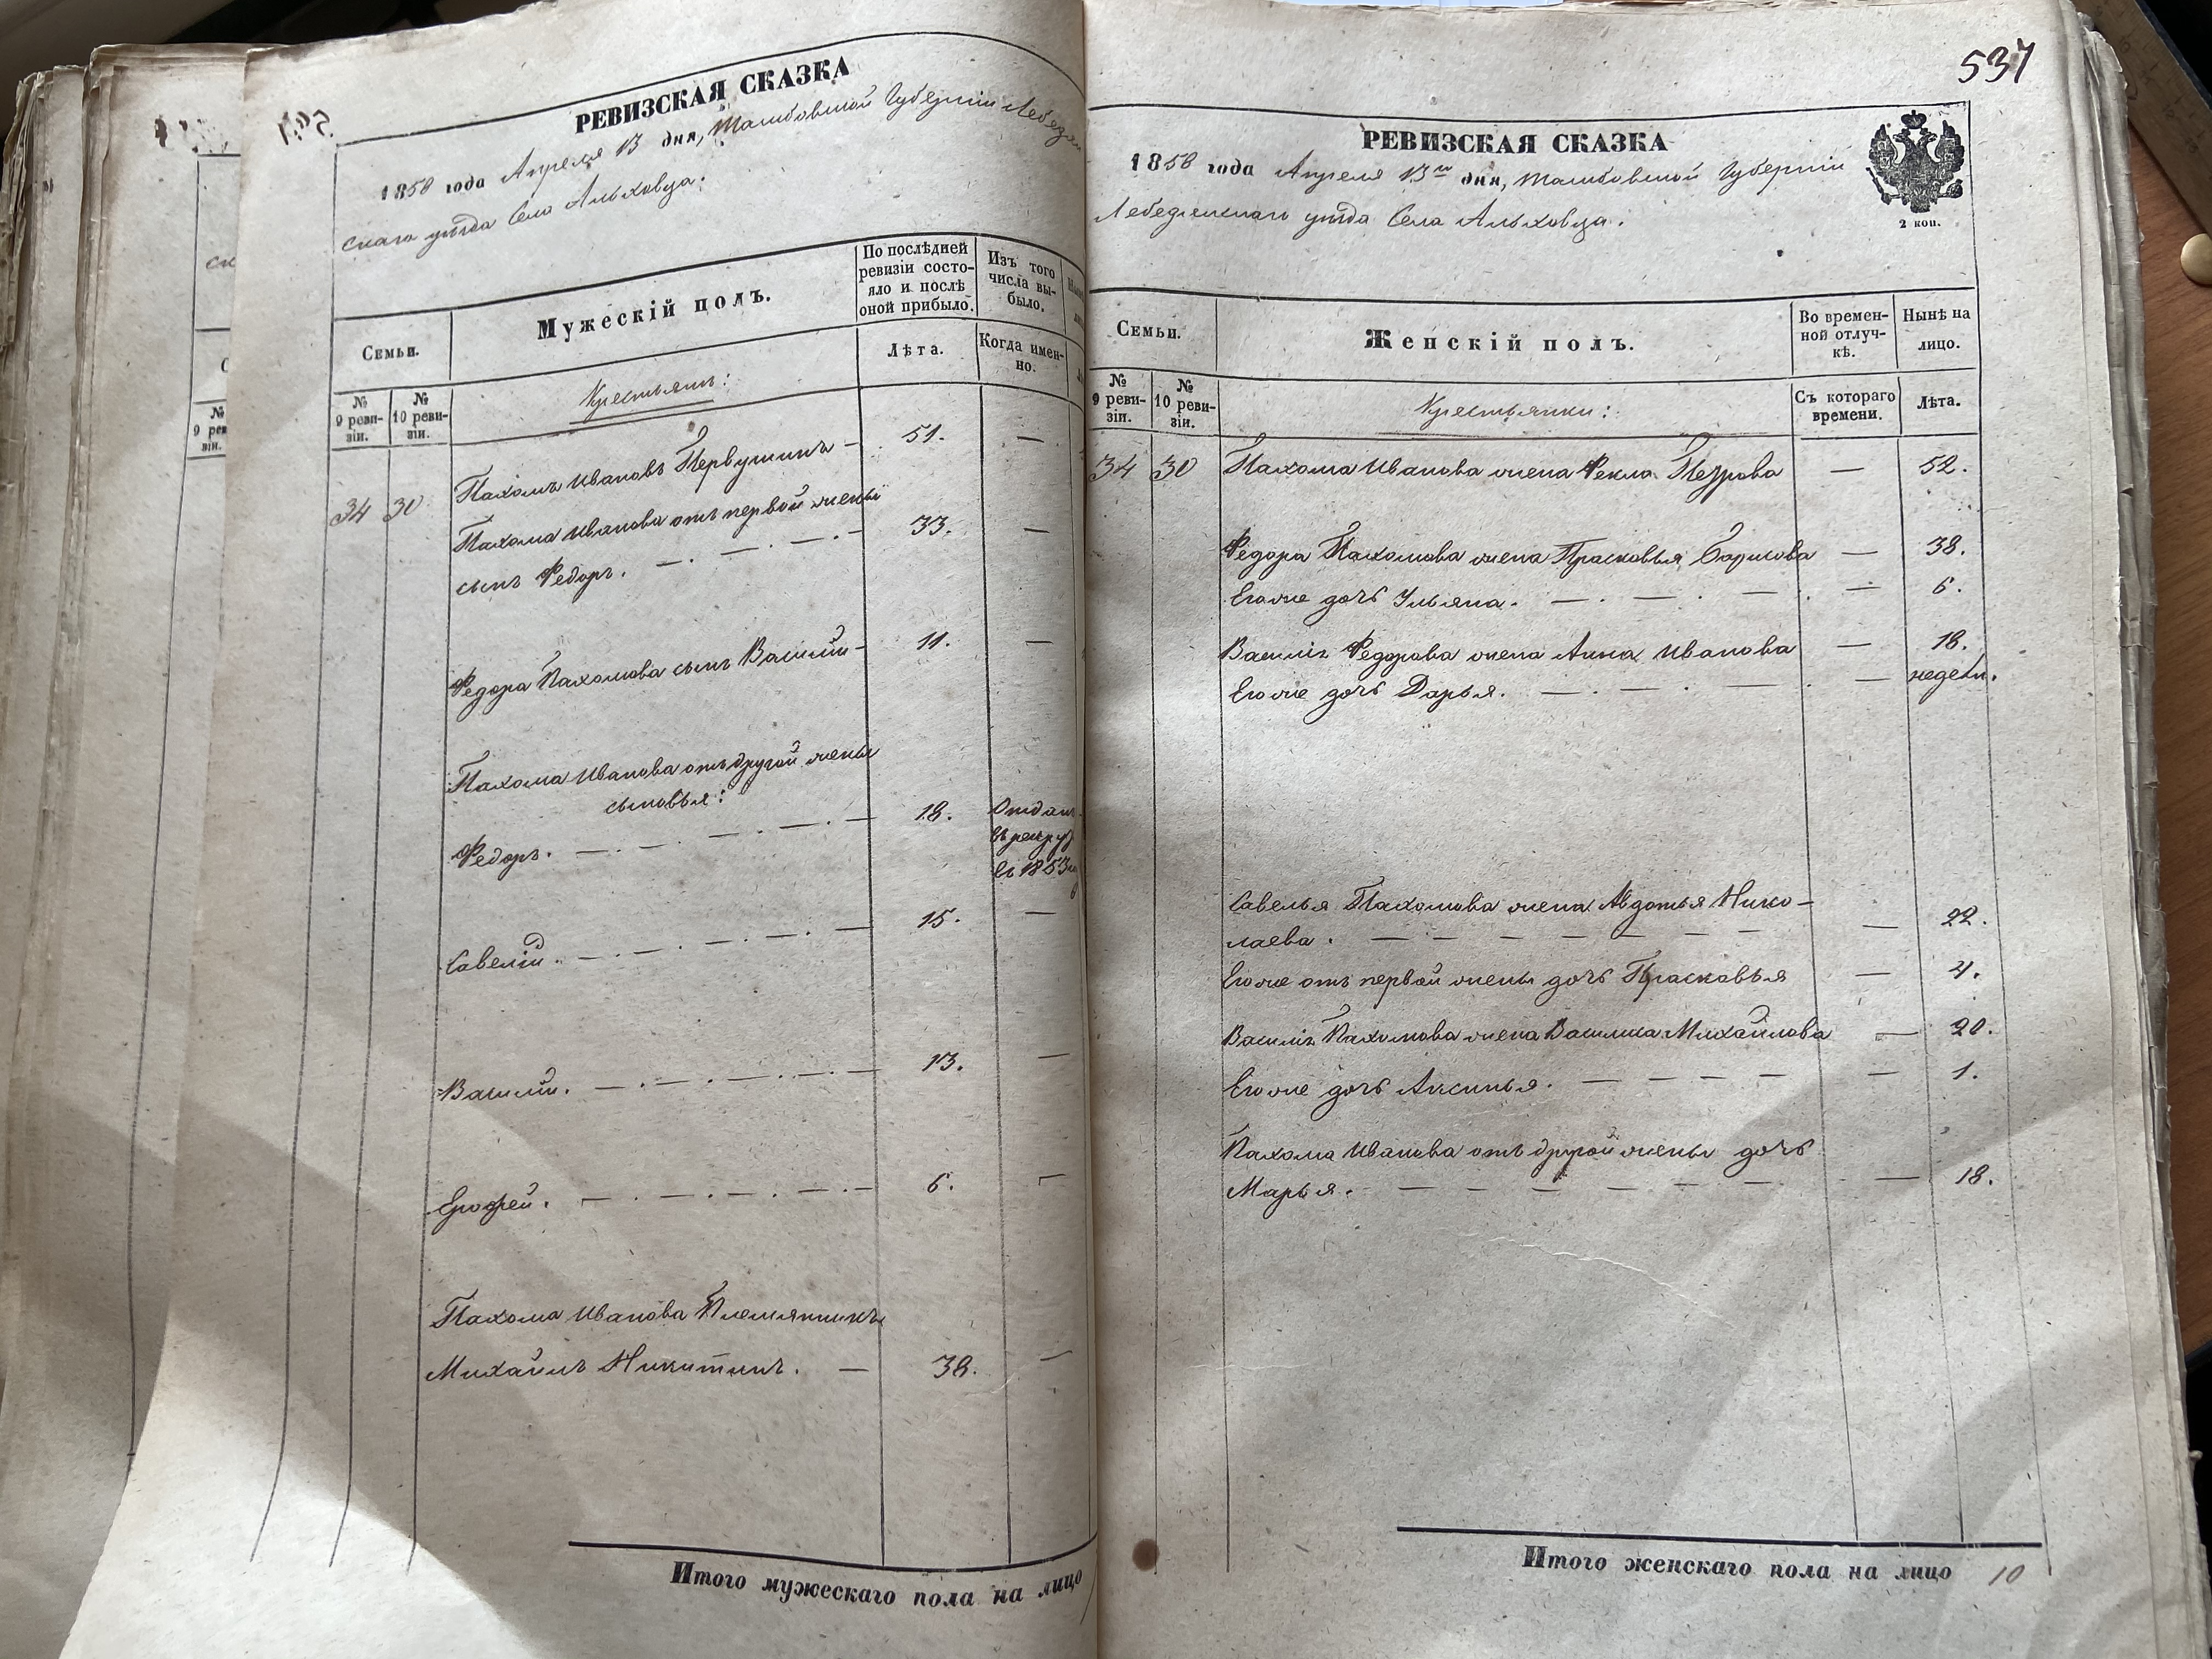 РЕВИЗСКАЯ СКАЗКА
1858 года Апреля 13 дня, Тамбовской Губернии Лебедян
скаго уѣзда Села Ольховца.
Семьи.
Мужескій полъ.
По послѣдней ревизіи состо-
яло и послѣ
оной прибыло.
Изъ того
числа вы-
было.
Лѣта.
Когда имен-
но.
№
9 реви-
зіи.
№
10 реви-
зіи.
Крестьянъ:
34 30 Пахомъ Ивановъ Первушинъ — 51. —
Пахома Иванова отъ первой жены
сынъ Федоръ. — 33. —
Федора Пахомова сынъ Василій — 11. —
Пахома Иванова отъ другой жены
сыновья:
Федоръ. — 18. Отдан
въ рекру
въ 1853
Савелій. — 15. —
Василій. — 13. —
Ерофей. — 6. —
Пахома Иванова Племянникъ
Михаилъ Никитинъ. — 38. —
Итого мужескаго пола на лицо
537
РЕВИЗСКАЯ СКАЗКА
1858 года Апреля 13го дня, Тамбовской Губерніи
Лебедянскаго уѣзда Села Ольховца.
2 коп.
Семьи.
Женскій полъ.
Во времен-
ной отлуч-
кѣ.
Нынѣ на
лицо.
№
9 реви-
зіи.
№
10 реви-
зіи.
Съ котораго
времени.
Лѣта.
Крестьянки:
34 30 Пахома Иванова жена Фекла Петрова — 52.
Федора Пахомова жена Прасковья Борисова — 38.
Его же дочь Ульяна. — 6.
Василія Федорова жена Анна Иванова — 18.
Его же дочь Дарья. — недели.
Савелья Пахомова жена Авдотья Нико-
лаева. — 22.
Его же отъ первой жены дочь Прасковья — 4.
Василія Пахомова жена Василиса Михайлова — 20.
Его же дочь Аксинья. — 1.
Пахома Иванова отъ другой жены дочь
Марья. — 18.
Итого женскаго пола на лицо 10